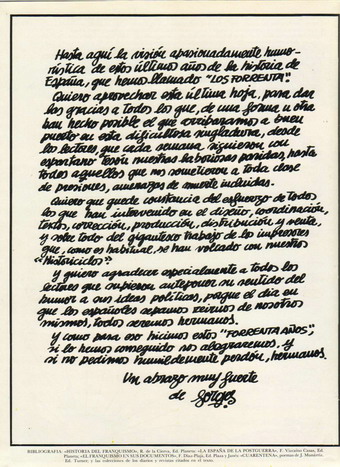 Hasta aquí la visión apasionadamente humo-
rística de estos últimos años de la historia de
España, que hemos llamado "LOS FORRENTA".
Quiero aprovechar esta última hoja, para dar
las gracias a todos los que, de una forma u otra
han hecho posible el que arribáramos a buen
puerto en esta dificultosa singladura, desde
los lectores, que cada semana siguieron con
espartano tesón nuestras laboriosas paridas, hasta
todos aquellos que nos sometieron a toda clase
de presiones, amenazas de muerte incluidas.
Quiero que quede constancia del esfuerzo de todos
los que han intervenido en el diseño, coordinación,
textos, corrección, producción, distribución y venta,
y sobre todo del gigantesco trabajo de los impresores
que, como es habitual, se han volcado con nuestro
"Historiciclo".
Y quiero agradecer especialmente a todos los
lectores que supieron anteponer su sentido del
humor a sus ideas políticas, porque el día en
que los españoles sepamos reírnos de nosotros
mismos, todos seremos hermanos.
Y como para eso hicimos estos "FORRENTA AÑOS",
si lo hemos conseguido nos alegraremos, y
si no pedimos humildemente perdón, hermanos.
Un abrazo muy fuerte
de Forges
BIBLIOGRAFIA: «HISTORIA DEL FRANQUISMO», R. de la Cierva, Ed. Planeta; «LA ESPAÑA DE LA POSTGUERRA», F. Vizcaíno Casas, Ed.
Planeta; «EL FRANQUISMO EN SUS DOCUMENTOS», F. Díaz-Plaja, Ed. Plaza y Janés; «CUARENTENA», poemas de J. Montero,
Ed. Turner, y las colecciones de los diarios y revistas citados en el texto.